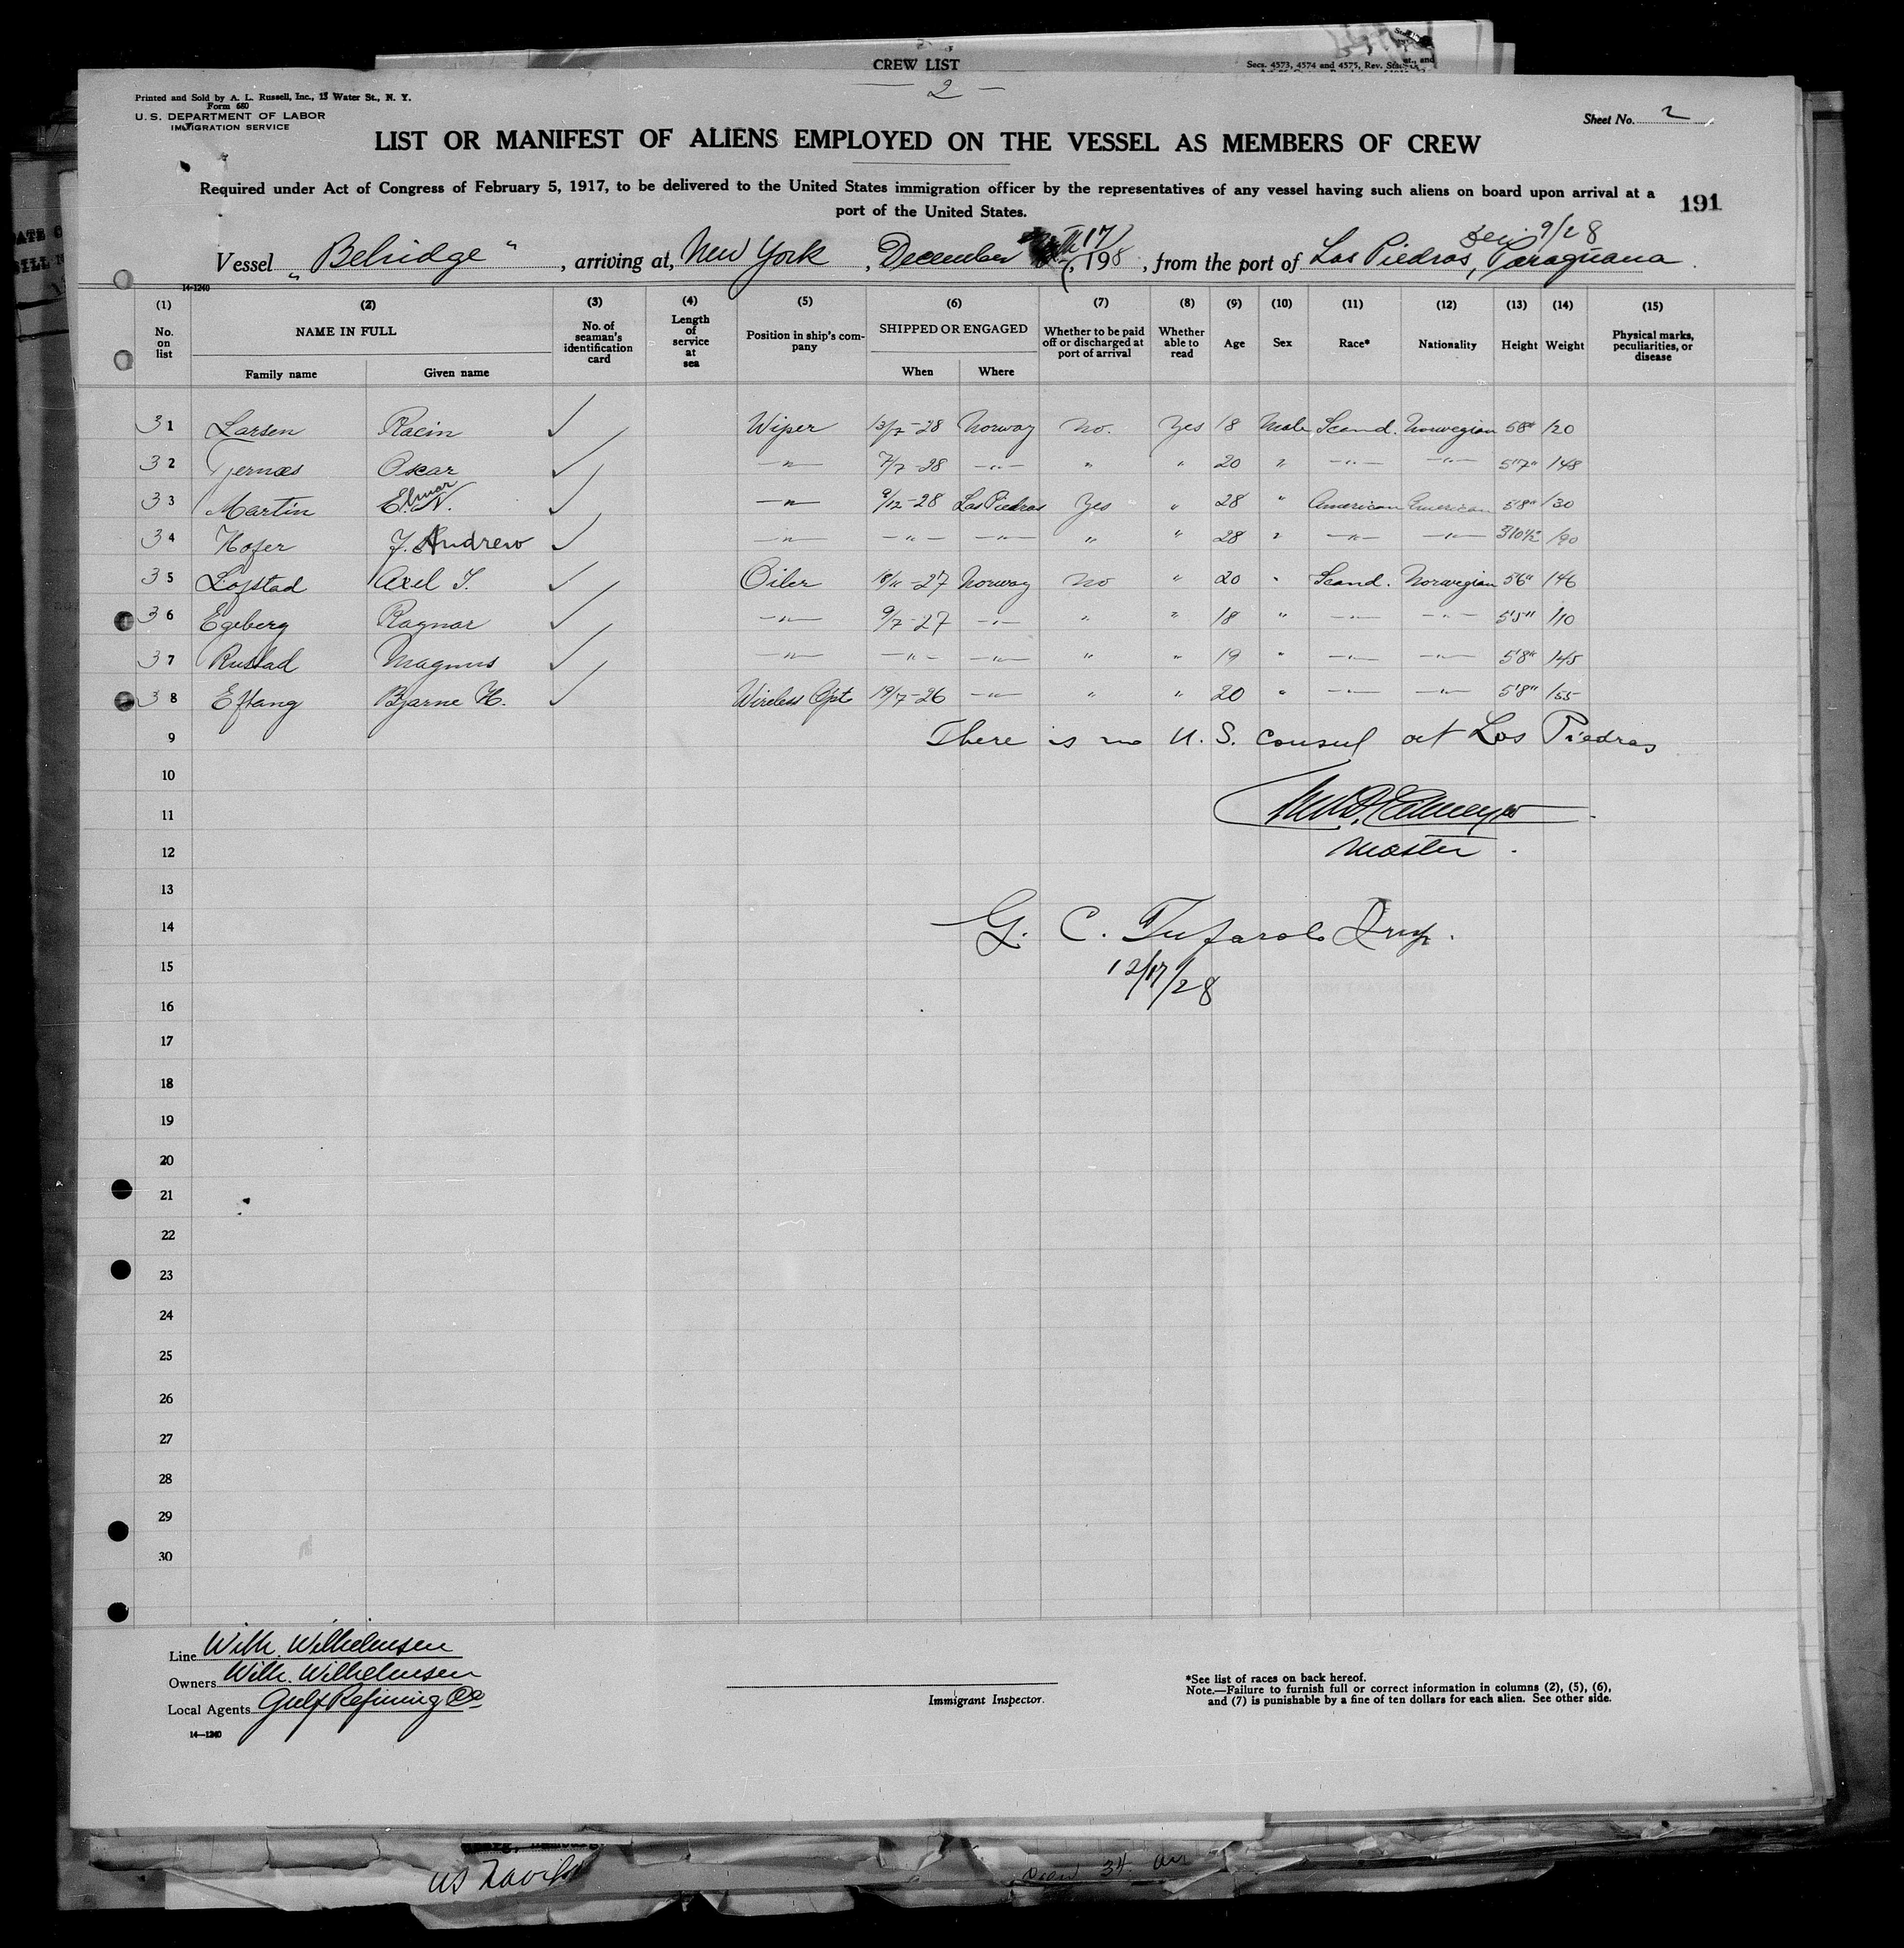 CREW LIST
Secs. 4573, 4574 and 4575, Rev.
— 2 —
Printed and Sold by A. L. Russell, Inc., 15 Water St., N. Y.
Form 680
U. S. DEPARTMENT OF LABOR
IMMIGRATION SERVICE
Sheet No. 2
LIST OR MANIFEST OF ALIENS EMPLOYED ON THE VESSEL AS MEMBERS OF CREW
Required under Act of Congress of February 5, 1917, to be delivered to the United States immigration officer by the representatives of any vessel having such aliens on board upon arrival at a
port of the United States.
191
Dec. 9/28
Vessel „Belridge“, arriving at, New York, December 17, 1928, from the port of Las Piedras, Paraguana.
14-1240
(1) (2) (3) (4) (5) (6) (7) (8) (9) (10) (11) (12) (13) (14) (15)
No. on list NAME IN FULL No. of seaman's identification card Length of service at sea Position in ship's company SHIPPED OR ENGAGED Whether to be paid off or discharged at port of arrival Whether able to read Age Sex Race* Nationality Height Weight Physical marks, peculiarities, or disease
Family name Given name When Where
31 Larsen ✓ Wiper 13/7-28 Norway No. Yes 18 Male Scand. Norwegian 5'8" 120
32 Oscar ✓ —"— 7/7-28 —"— " " 20 " —"— —"— 5'7" 148
33 Martin Elmar N. ✓ —"— 9/12-28 Las Piedras Yes " 28 " American American 5'8" 130
34 Hofer J. Andrew ✓ —"— —"— —"— " " 28 " —"— —"— 190
35 Lofstad Axel T. ✓ Oiler 18/11-27 Norway No " 20 " Scand. Norwegian 5'6" 146
36 Egeberg Ragnar ✓ —"— 9/7-27 —"— " " 18 " —"— —"— 5'5" 110
37 Rustad Magnus ✓ —"— —"— —"— " " 19 " —"— —"— 5'8" 145
38 Eftang Bjarne H. ✓ Wireless Opt 19/7-26 —"— " " 20 " —"— —"— 5'8" 155
9 There is no U. S. Consul at Los Piedras
10
11
12 Master.
13
14 G. C. Tufarolo Insp.
15 12/17/28
16
17
18
19
20
21
22
23
24
25
26
27
28
29
30
Line Wilh. Wilhelmsen
Owners Wilh. Wilhelmsen
Local Agents Gulf Refining Co
14—1240
Immigrant Inspector.
*See list of races on back hereof.
Note.—Failure to furnish full or correct information in columns (2), (5), (6),
and (7) is punishable by a fine of ten dollars for each alien. See other side.